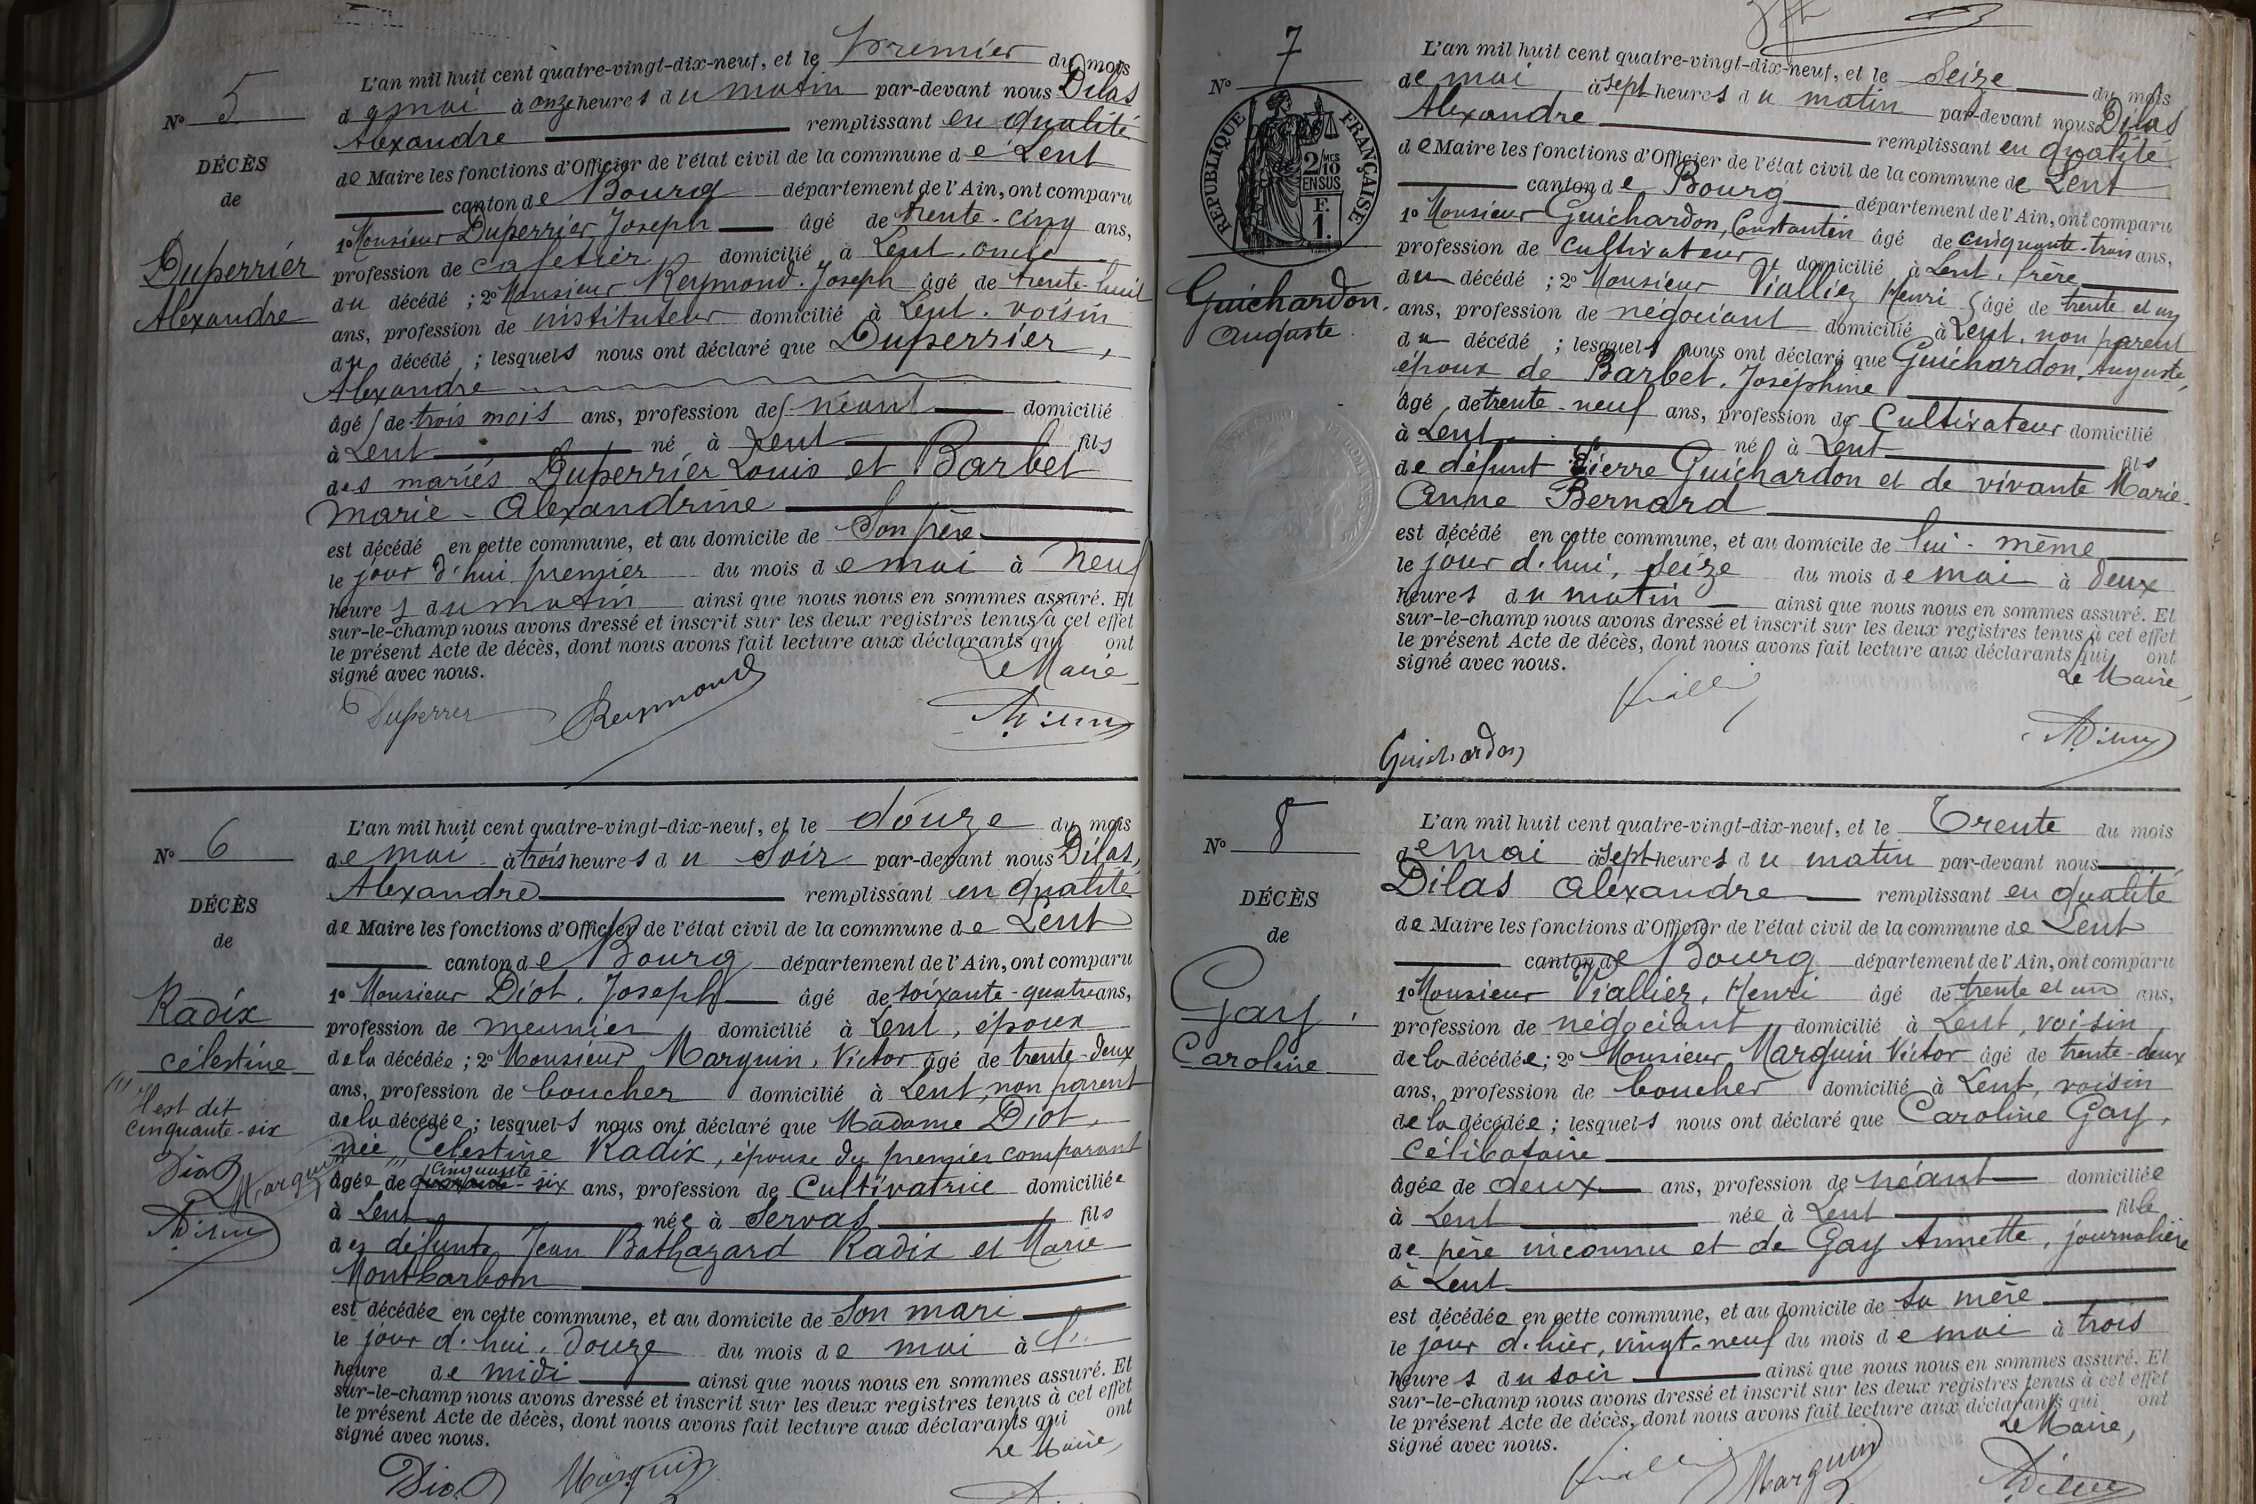 N° 5
DÉCÈS
de
Duperrier
Alexandre
L'an mil huit cent quatre-vingt-dix-neuf, et le premier du mois
de mai à onze heures du matin par-devant nous Dilas
Alexandre remplissant en qualité
de Maire les fonctions d'Officier de l'état civil de la commune de Lent
canton de Bourg département de l'Ain, ont comparu
1° Monsieur Duperrier Joseph âgé de trente-cinq ans,
profession de cafetier domicilié à Lent, oncle
du décédé ; 2° Monsieur Reymond Joseph âgé de trente-huit
ans, profession de instituteur domicilié à Lent, voisin
du décédé ; lesquels nous ont déclaré que Duperrier,
Alexandre
âgé de trois mois ans, profession de néant domicilié
à Lent né à Lent fils
des mariés Duperrier Louis et Barbet
Marie-Alexandrine
est décédé en cette commune, et au domicile de Son père
le jour d'hui premier du mois de mai à neuf
heures du matin ainsi que nous nous en sommes assuré. Et
sur-le-champ nous avons dressé et inscrit sur les deux registres tenus à cet effet
le présent Acte de décès, dont nous avons fait lecture aux déclarants qui ont
signé avec nous.
Le Maire
Duperrier Reymond ADilas
N° 6
DÉCÈS
de
Radix
Célestine
(1) Il est dit
cinquante-six
Diot
Marguin
ADilas
L'an mil huit cent quatre-vingt-dix-neuf, et le douze du mois
de mai à trois heures du Soir par-devant nous Dilas,
Alexandre remplissant en qualité
de Maire les fonctions d'Officier de l'état civil de la commune de Lent
canton de Bourg département de l'Ain, ont comparu
1° Monsieur Diot, Joseph âgé de soixante-quatre ans,
profession de meunier domicilié à Lent, époux
de la décédée ; 2° Monsieur Marguin, Victor âgé de trente-deux
ans, profession de boucher domicilié à Lent, non parent
de la décédée ; lesquels nous ont déclaré que Madame Diot,
née Célestine Radix, épouse du premier comparant
cinquante
âgée de quarante-six ans, profession de Cultivatrice domiciliée
à Lent née à Servas fils
des défunts Jean Bathazard Radix et Marie
Montbarbon
est décédée en cette commune, et au domicile de Son mari
le jour d'hui, douze du mois de mai à
heure de midi ainsi que nous nous en sommes assuré. Et
sur-le-champ nous avons dressé et inscrit sur les deux registres tenus à cet effet
le présent Acte de décès, dont nous avons fait lecture aux déclarants qui ont
signé avec nous.
Le Maire,
Diot Marguin
N° 7
RÉPUBLIQUE FRANÇAISE
2/10
EN SUS
F.
1.
Guichardon,
Auguste.
L'an mil huit cent quatre-vingt-dix-neuf, et le Seize du mois
de mai à sept heures du matin par-devant nous Dilas
Alexandre remplissant en qualité
de Maire les fonctions d'Officier de l'état civil de la commune de Lent
canton de Bourg département de l'Ain, ont comparu
1° Monsieur Guichardon, Constantin âgé de cinquante-trois ans,
profession de cultivateur domicilié à Lent, frère
du décédé ; 2° Monsieur Viallier Henri âgé de trente et un
ans, profession de négociant domicilié à Lent, non parent
du décédé ; lesquels nous ont déclaré que Guichardon, Auguste,
époux de Barbet, Joséphine
âgé de trente-neuf ans, profession de Cultivateur domicilié
à Lent né à Lent fils
de défunt Pierre Guichardon et de vivante Marie-
Anne Bernard
est décédé en cette commune, et au domicile de lui-même
le jour d'hui, seize du mois de mai à deux
heures du matin ainsi que nous nous en sommes assuré. Et
sur-le-champ nous avons dressé et inscrit sur les deux registres tenus à cet effet
le présent Acte de décès, dont nous avons fait lecture aux déclarants qui ont
signé avec nous.
Le Maire,
ADilas
Guichardon
N° 8
DÉCÈS
de
Gay,
Caroline
L'an mil huit cent quatre-vingt-dix-neuf, et le Trente du mois
de mai à sept heures du matin par-devant nous
Dilas Alexandre remplissant en qualité
de Maire les fonctions d'Officier de l'état civil de la commune de Lent
canton de Bourg département de l'Ain, ont comparu
1° Monsieur Viallier, Henri âgé de trente et un ans,
profession de négociant domicilié à Lent, voisin
de la décédée ; 2° Monsieur Marguin Victor âgé de trente-deux
ans, profession de boucher domicilié à Lent, voisin
de la décédée ; lesquels nous ont déclaré que Caroline Gay,
célibataire
âgée de deux ans, profession de néant domiciliée
à Lent née à Lent fille
de père inconnu et de Gay Annette, journalière
à Lent
est décédée en cette commune, et au domicile de sa mère
le jour d'hier, vingt-neuf du mois de mai à trois
heures du soir ainsi que nous nous en sommes assuré. Et
sur-le-champ nous avons dressé et inscrit sur les deux registres tenus à cet effet
le présent Acte de décès, dont nous avons fait lecture aux déclarants qui ont
signé avec nous.
Le Maire,
Marguin ADilas